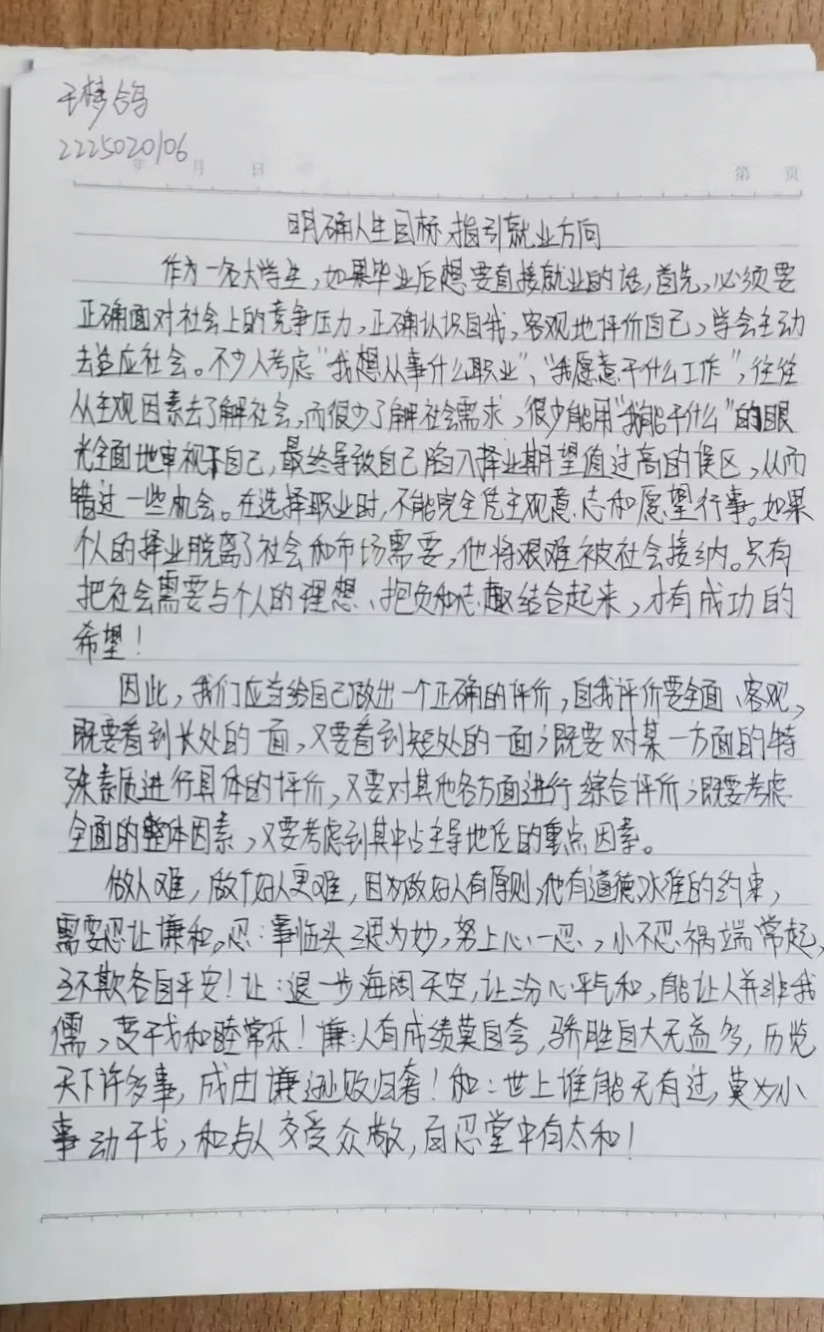 王梦鸽
2225020106
年 月 日
第 页
明确人生目标,指引就业方向
作为一名大学生,如果毕业后想要直接就业的话,首先,必须要
正确面对社会上的竞争压力,正确认识自我,客观地评价自己,学会主动
去适应社会。不少人考虑“我想从事什么职业”、“我愿意干什么工作”,往往
从主观因素去了解社会,而很少了解社会需求,很少能用“我能干什么”的眼
光全面地审视自己,最终导致自己陷入择业期望值过高的误区,从而
错过一些机会。在选择职业时,不能完全凭主观意志和愿望行事。如果
个人的择业脱离了社会和市场需要,他将艰难被社会接纳。只有
把社会需要与个人的理想、抱负和志趣结合起来,才有成功的
希望!
因此,我们应当给自己做出一个正确的评价,自我评价要全面、客观,
既要看到长处的一面,又要看到短处的一面;既要对某一方面的特
殊素质进行具体的评价,又要对其他各方面进行综合评价;既要考虑
全面的整体因素,又要考虑到其中占主导地位的重点因素。
做人难,做好人更难,因为做好人有原则,他有道德水准的约束,
需要忍让谦和。忍:事临头三思为妙,努上心一忍,小不忍祸端常起,
互不欺各自平安!让:退一步海阔天空,让三分心平气和,能让人并非我
儒,变干戈和睦常乐!谦:人有成绩莫自夸,骄胜自大无益多,历览
天下许多事,成由谦逊败归奢!和:世上谁能无有过,莫为小
事动干戈,和与人交受众敬,百忍堂中有太和!